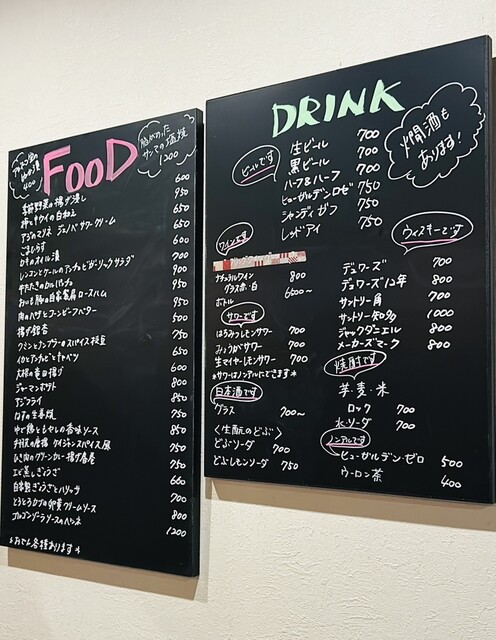 FOOD
400
脂がのった
サンマの酒焼
1200
季節野菜の揚げ浸し 600
柿とキウイの白和え 950
アジのマリネ ジェノバサワークリーム 650
ごましらす 600
かきのオイル漬 700
レンコンとケールのアンチョビガーリックサラダ 900
牛たたきのカルパッチョ 950
おいも豚の自家製肩ロースハム 950
肉のパテとコンビーフバター 500
揚げ銀杏 750
クミンとナンプラーのスパイス枝豆 650
イカとアンチョビとキャベツ 750
大根の竜田揚げ 600
ジャーマンポテト 800
アジフライ 850
なすの生姜焼 750
ゆで鶏ともやしの香味ソース 850
手羽元の唐揚 ケイジャンスパイス風 750
ひき肉のグリーンカレー揚げ春巻 750
エビ蒸しぎょうざ 660
自家製ぎょうざとハリッサ 700
とうとうカブの卵黄クリームソース 800
ゴルゴンゾーラソースのペンネ 1200
*おでん各種あります*
DRINK
燗酒も
あります!
ビールです
生ビール 700
黒ビール 700
ハーフ&ハーフ 700
ヒューガルデンロゼ 750
シャンディガフ 750
レッドアイ 750
ワインです
ナチュラルワイン
グラス 赤・白 800
ボトル 6600~
サワーです
はちみつレモンサワー 700
みょうがサワー 700
生マイヤーレモンサワー 700
*サワーはノンアルにできます*
日本酒です
グラス 700~
〈生酛のどぶ〉
どぶソーダ 700
どぶレモンソーダ 750
ウィスキーです
デュワーズ 700
デュワーズ12年 800
サントリー角 700
サントリー知多 1000
ジャックダニエル 800
メーカーズマーク 800
焼酎です
芋・麦・米
ロック 700
水・ソーダ 700
ノンアルです
ヒューガルデン・ゼロ 500
ウーロン茶 400